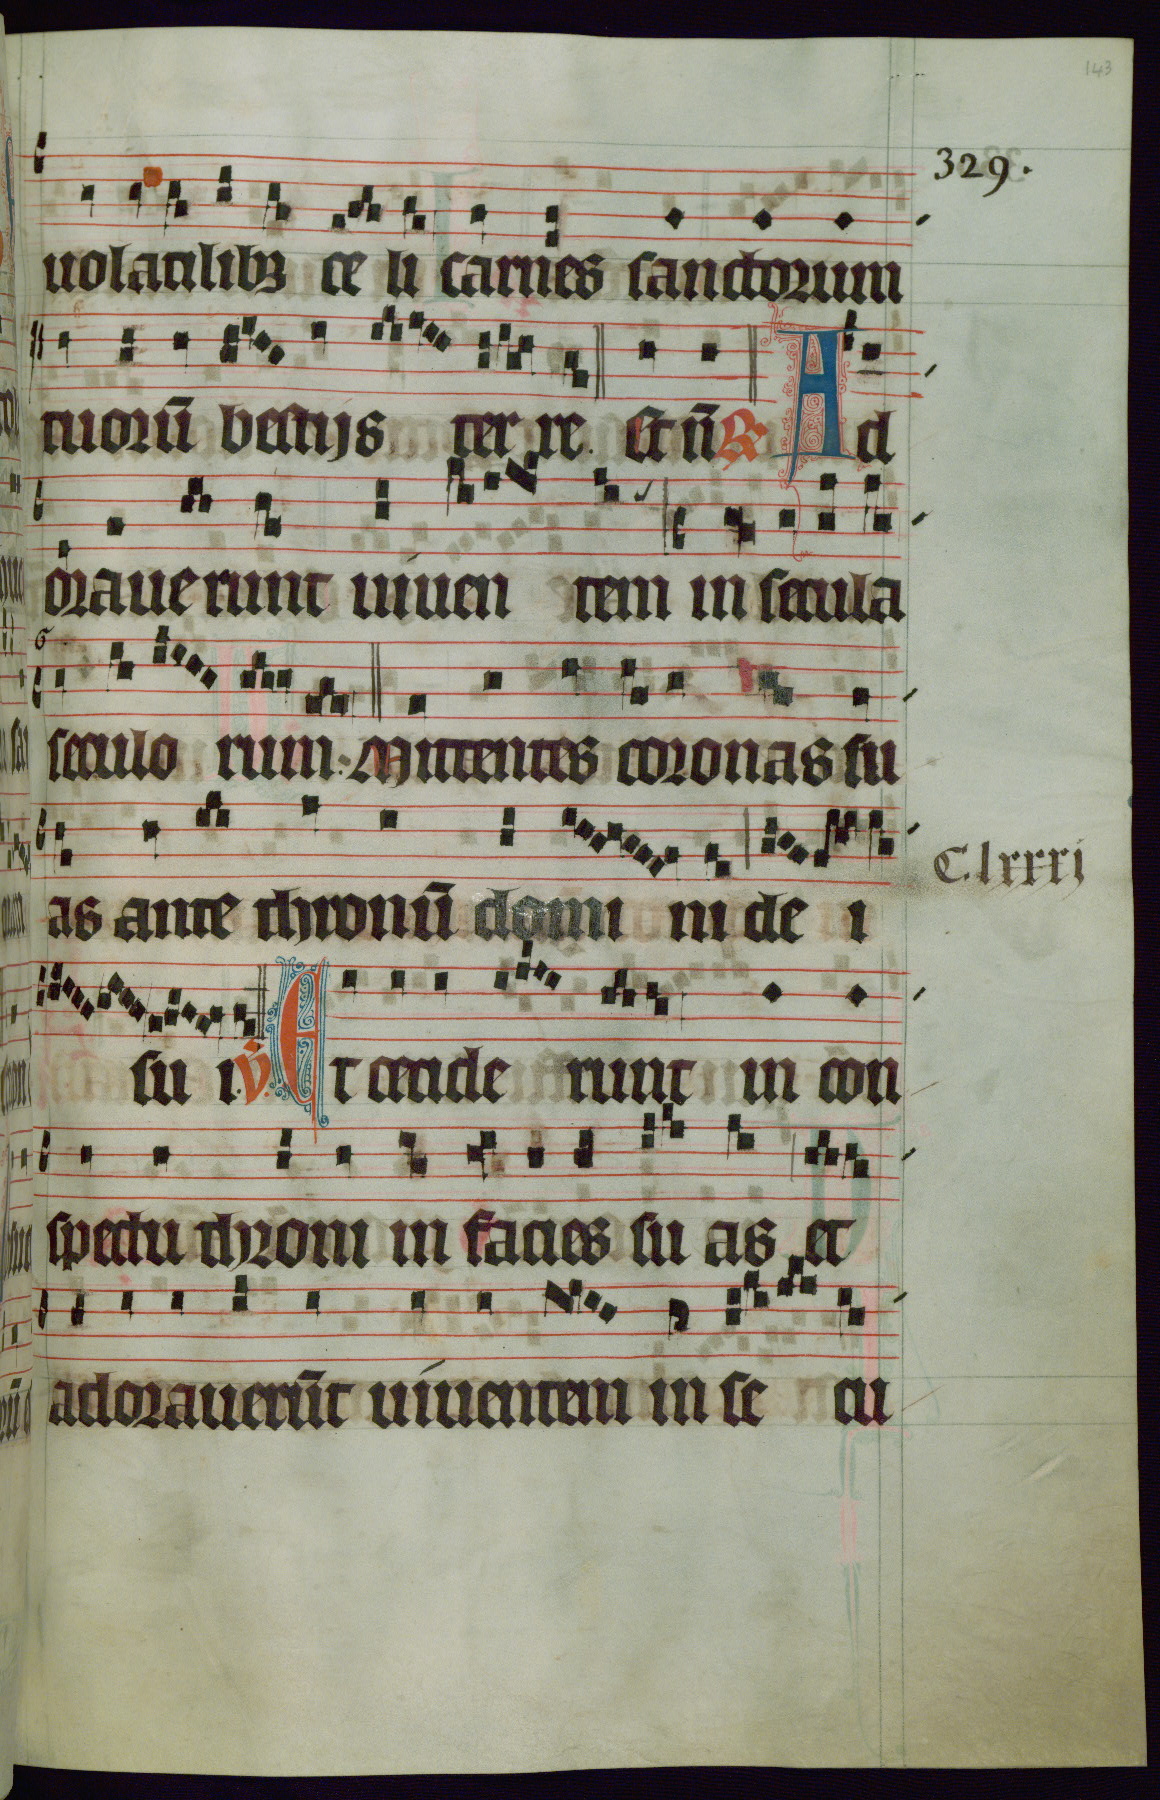 143
329.
uolatilibꝫ ce li carnes sanctorum
tuorū bestijs ter re. Et n̄ ℟ Ad
orauerunt uiuen tem in secula
seculo rum: Mittentes coronas su
as ante thronū domi ni de i
C.lxxxj
su i. ℣. Et cecide runt in con
spectu throni in facies su as et
adorauerūt uiuentem in se cu